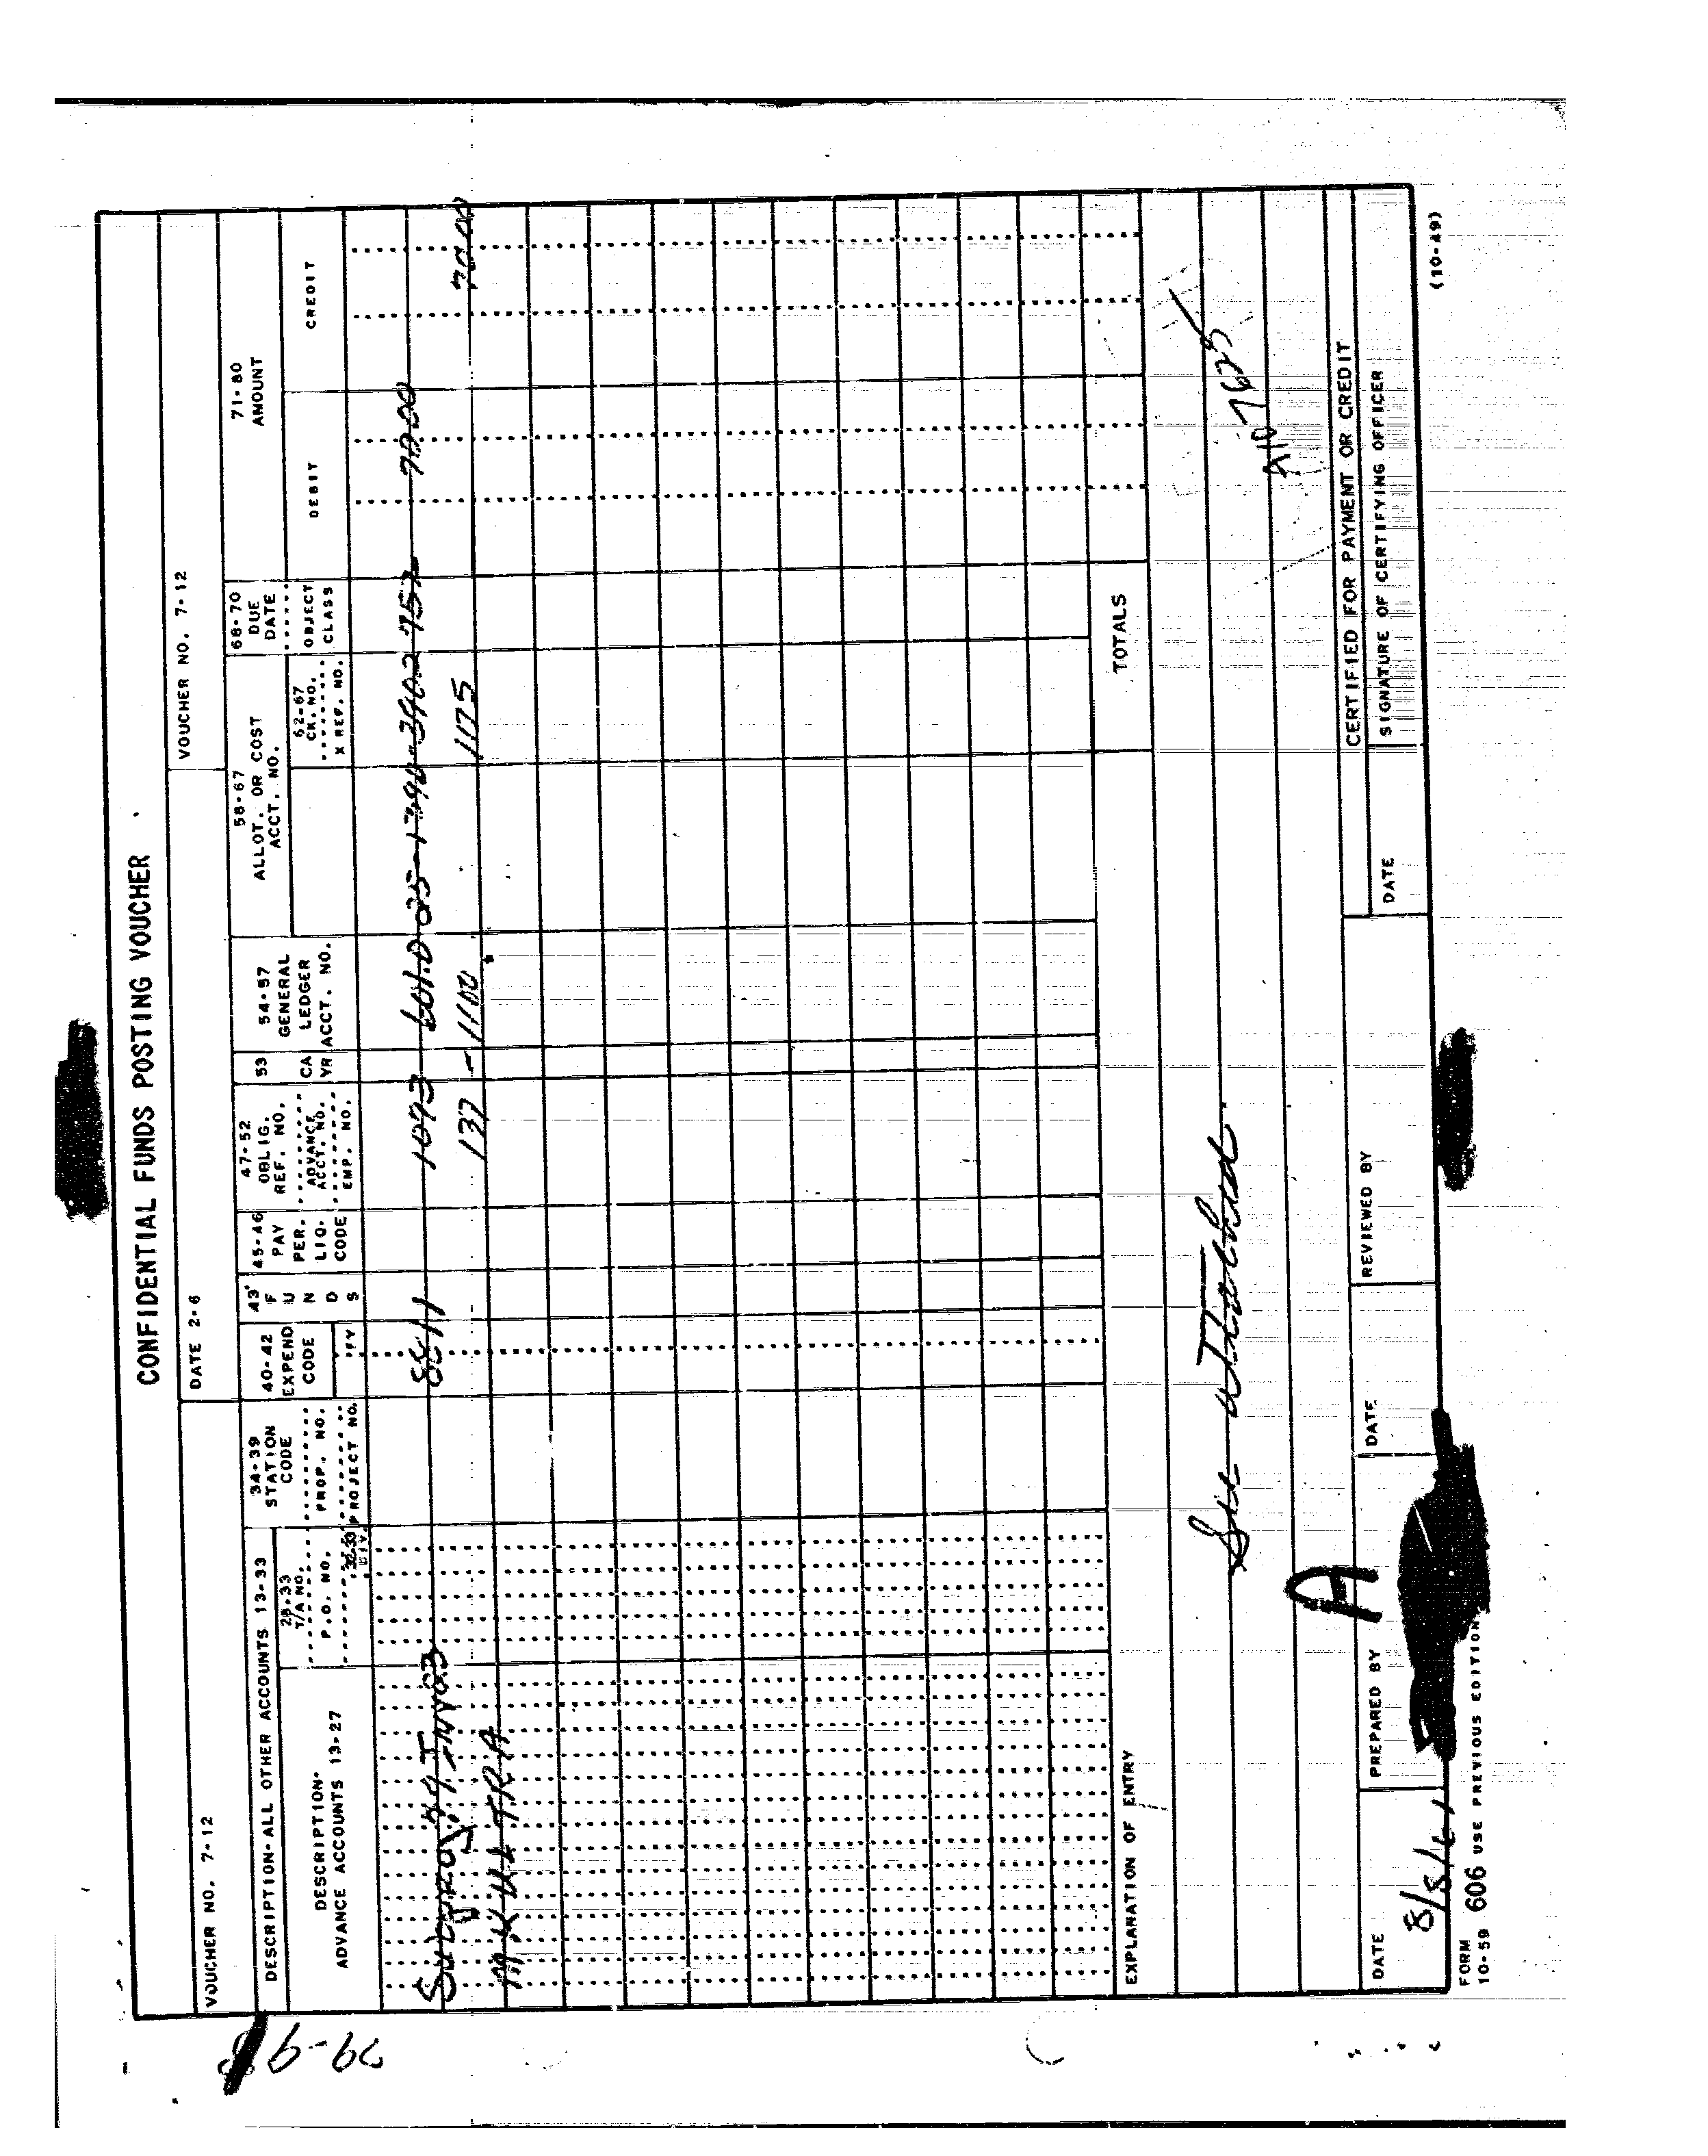 CONFIDENTIAL FUNDS POSTING VOUCHER
VOUCHER NO. 7-12
DATE 2-6
VOUCHER NO. 7-12
DESCRIPTION-ALL OTHER ACCOUNTS 13-33
DESCRIPTION-
ADVANCE ACCOUNTS 13-27
28-33
T/A NO.
P.O. NO.
32-33
DIV.
34-39
STATION
CODE
PROP. NO.
PROJECT NO.
40-42
EXPEND
CODE
43
F
U
N
D
S
45-46
PAY
PER.
LIQ.
CODE
47-52
OBLIG.
REF. NO.
ADVANCE
ACCT. NO.
EMP. NO.
53
CA
YR
54-57
GENERAL
LEDGER
ACCT. NO.
58-67
ALLOT. OR COST
ACCT. NO.
62-67
CK. NO.
X REF. NO.
68-70
DUE
DATE
OBJECT
CLASS
71-80
AMOUNT
DEBIT
CREDIT
1093 601.0
MKULTRA 137 - 1100 1175 70 00
TOTALS
EXPLANATION OF ENTRY
See attached.
A
CERTIFIED FOR PAYMENT OR CREDIT
DATE
PREPARED BY
DATE
REVIEWED BY
DATE
SIGNATURE OF CERTIFYING OFFICER
8/8/61
FORM
10-59 606 USE PREVIOUS EDITION
(10-49)